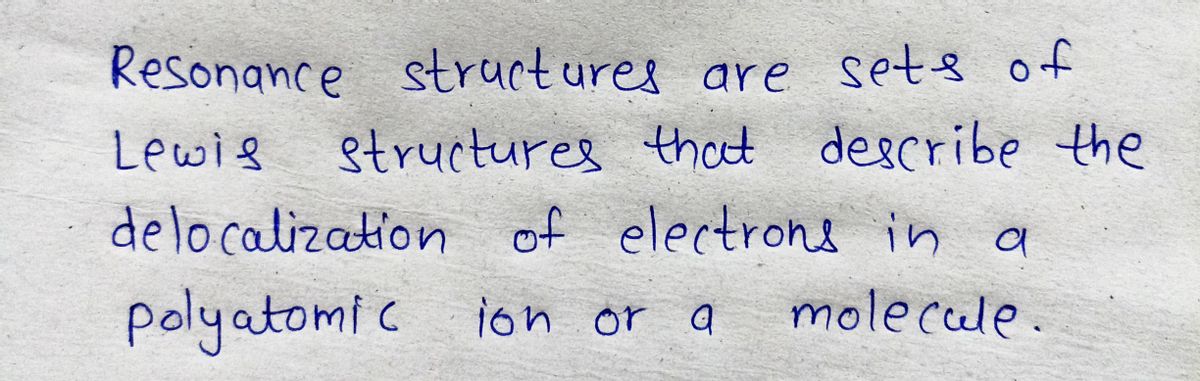 Resonance structures are sets of
Lewis structures that describe the
delocalization of electrons in a
polyatomic ion or a molecule.